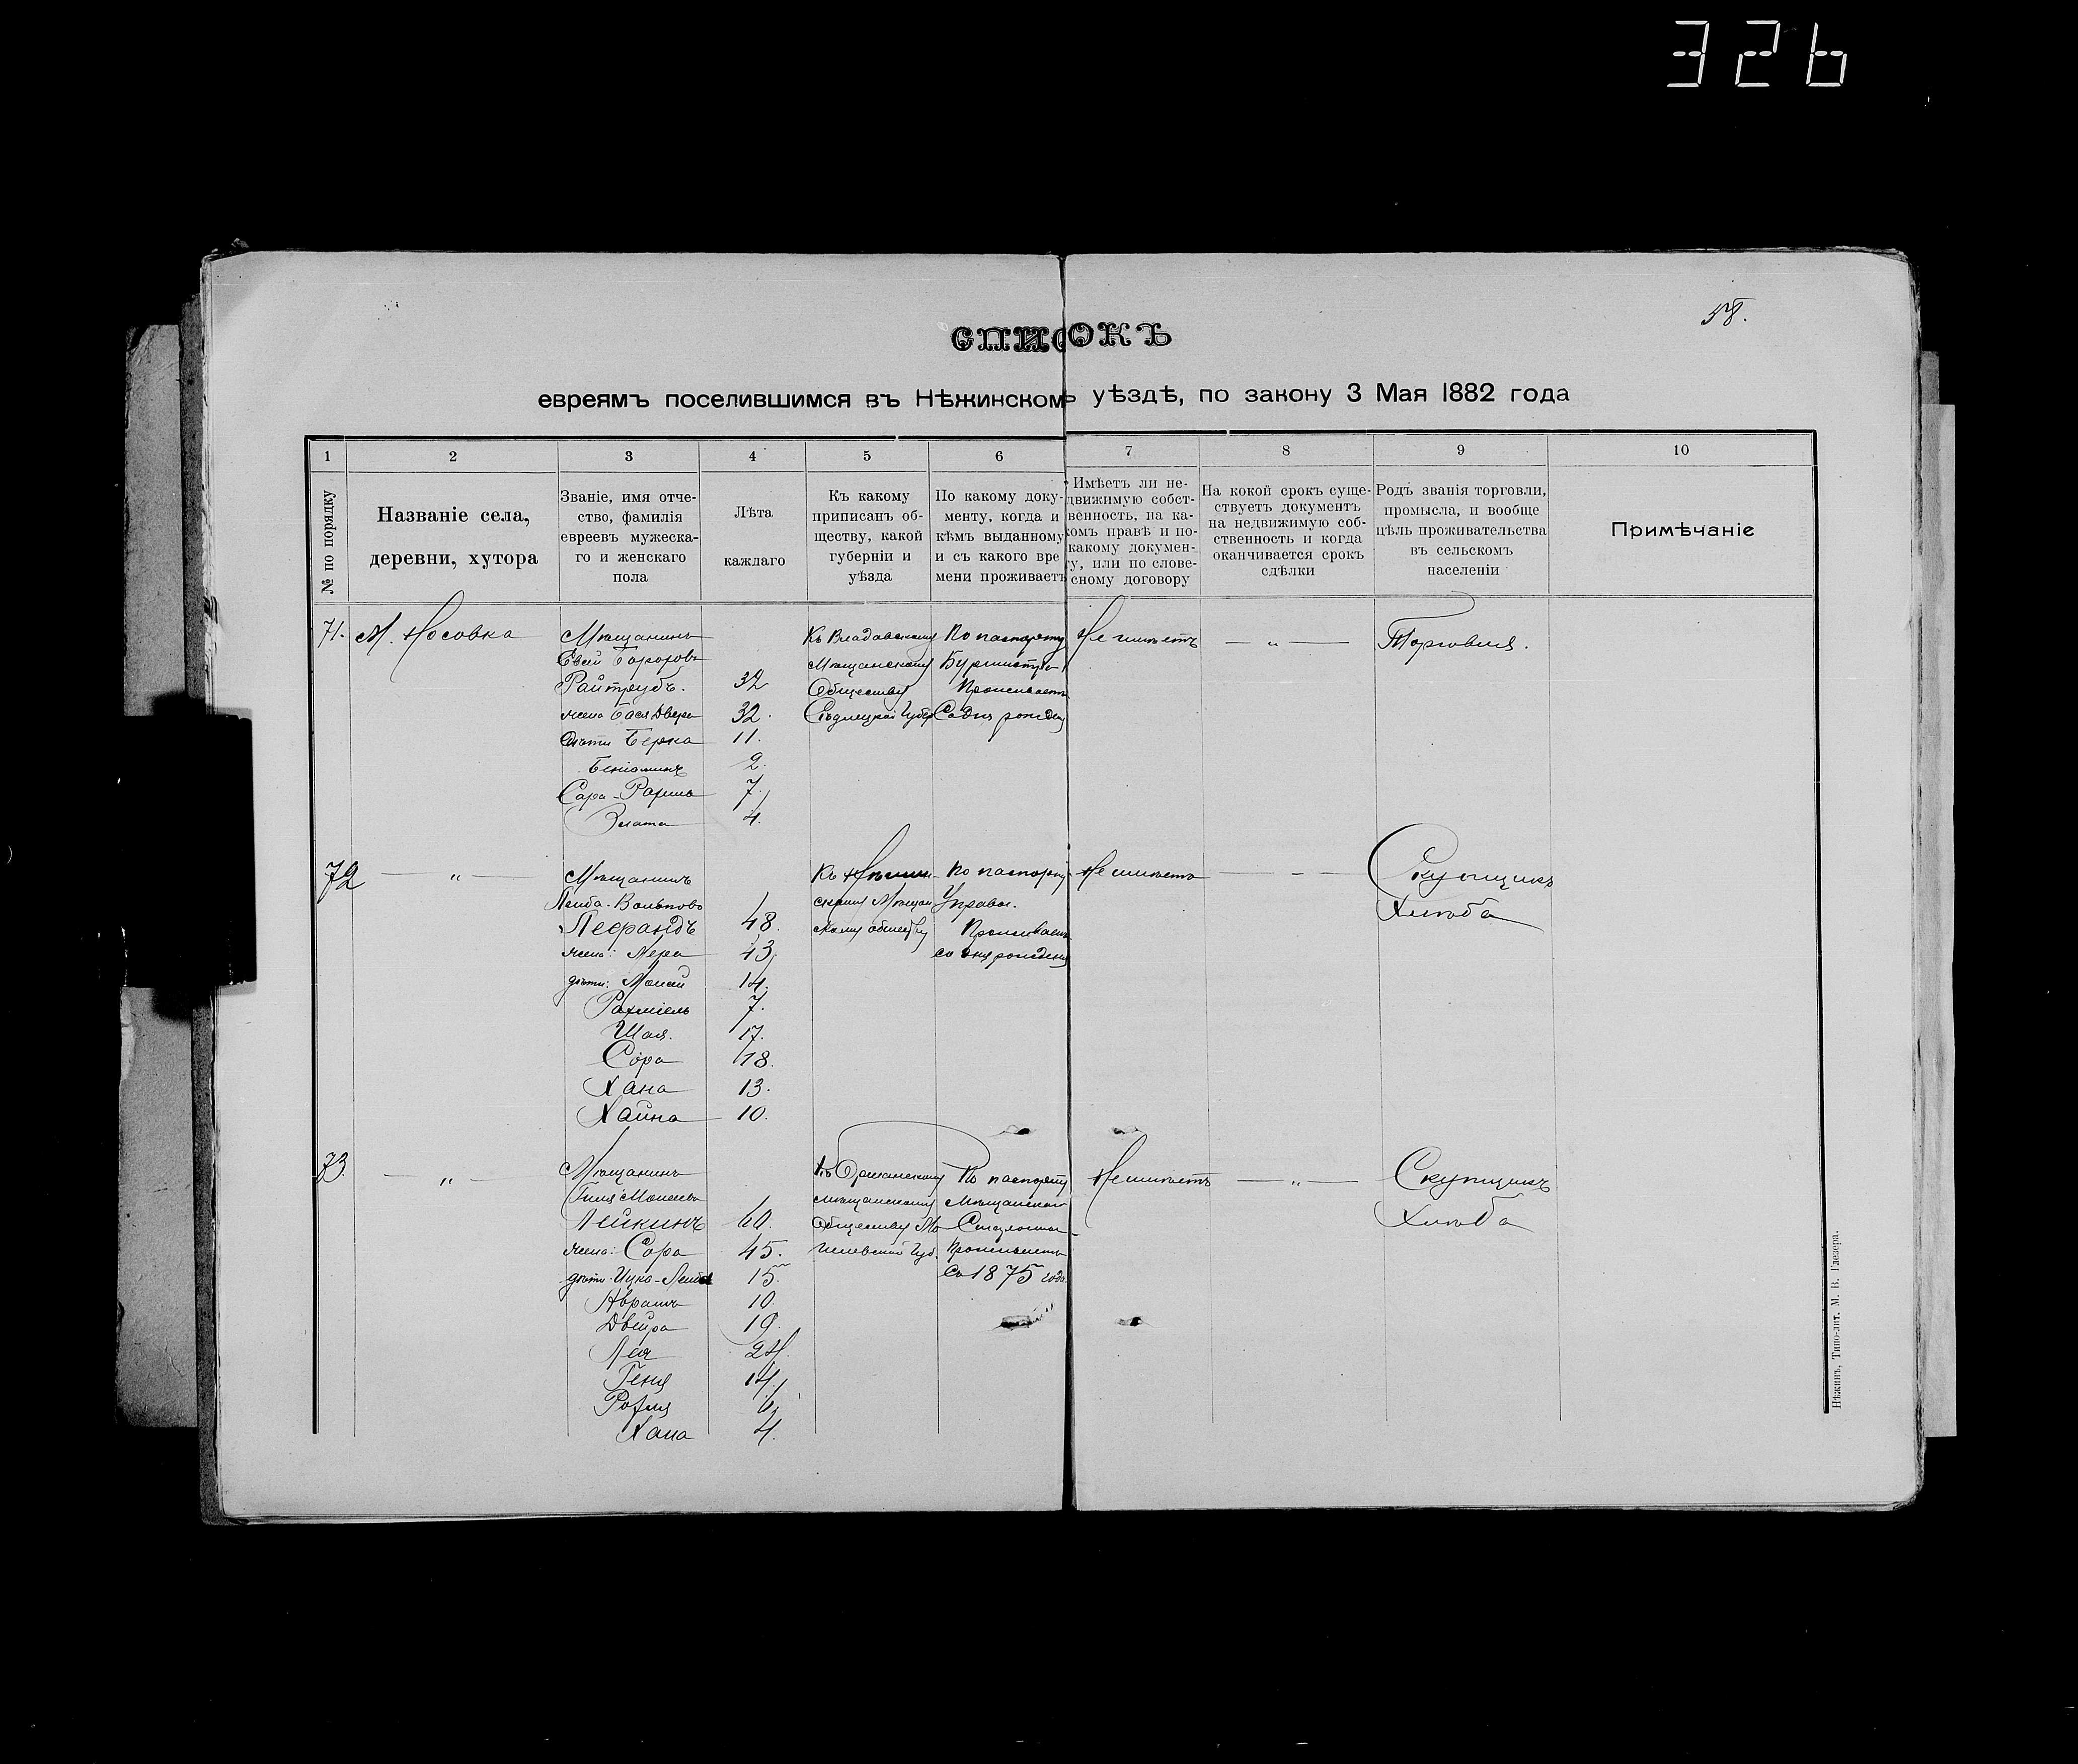 326
58.
СПИСОКЪ
евреямъ поселившимся въ Нѣжинскомъ уѣздѣ, по закону 3 Мая 1882 года
1 2 3 4 5 6 7 8 9 10
№ по порядку
Названіе села,
деревни, хутора
Званіе, имя отче-
ство, фамилія
евреевъ мужеска-
го и женскаго
пола
Лѣта
каждаго
Къ какому
приписанъ об-
ществу, какой
губерніи и
уѣзда
По какому доку-
менту, когда и
кѣмъ выданному
и съ какого вре
мени проживаетъ
Имѣетъ ли не-
движимую собст-
венность, на ка-
комъ правѣ и по-
какому докумен-
ту, или по слове-
сному договору
На кокой срокъ суще-
ствуетъ документъ
на недвижимую соб-
ственность и когда
оканчивается срокъ
сдѣлки
Родъ званія торговли,
промысла, и вообще
цѣль проживательства
въ сельскомъ
населеніи
Примѣчаніе
71.
М. Носовка
Мѣщанинъ
Райтрубъ. 32
жена Бася Двера 32.
дѣти Берка 11.
Беніоминъ 2.
Сара-Рохма 7.
Злата 4.
Къ Владавскому
Мѣщанскому
Обществу
Сѣдлецкой Губер
По паспорту
Бурмистра
Проживаетъ
Со дня рожден
Не имѣетъ
— „ —
Торговля.
72
— „ —
Мѣщанинъ
Лейба-Вольпово
48.
жена: 43.
дѣти: Мойсей 14.
Рахмієль 7.
Шая. 17.
Сора 18.
Хана 13.
Хайка 10.
Къ Нѣжин-
скому Мѣщан
скому обществу
По паспорту
Управы.
Проживаетъ
со дня рожденія
Не имѣетъ
— - —
Скупщикъ
Хлѣба
73.
— „ —
Мѣщанинъ
Гиля Мойсеевъ
Лейкинъ 60.
жена: Сора 45.
дѣти: Ицко-Лейба 15.
Абрамъ 10
Двейра 19.
Лея 24.
Геня 14.
Рохля 6.
Хана 4.
Къ Оршанскому
мѣщанскому
обществу Мо
гилевской Губ.
По паспорту
Мѣщанскаго
Старосты
Проживаетъ
Съ 1875 года.
Не имѣетъ
— „ —
Скупщикъ
Хлѣба
Нѣжинъ, Типо-лит. М. В. Глезера.